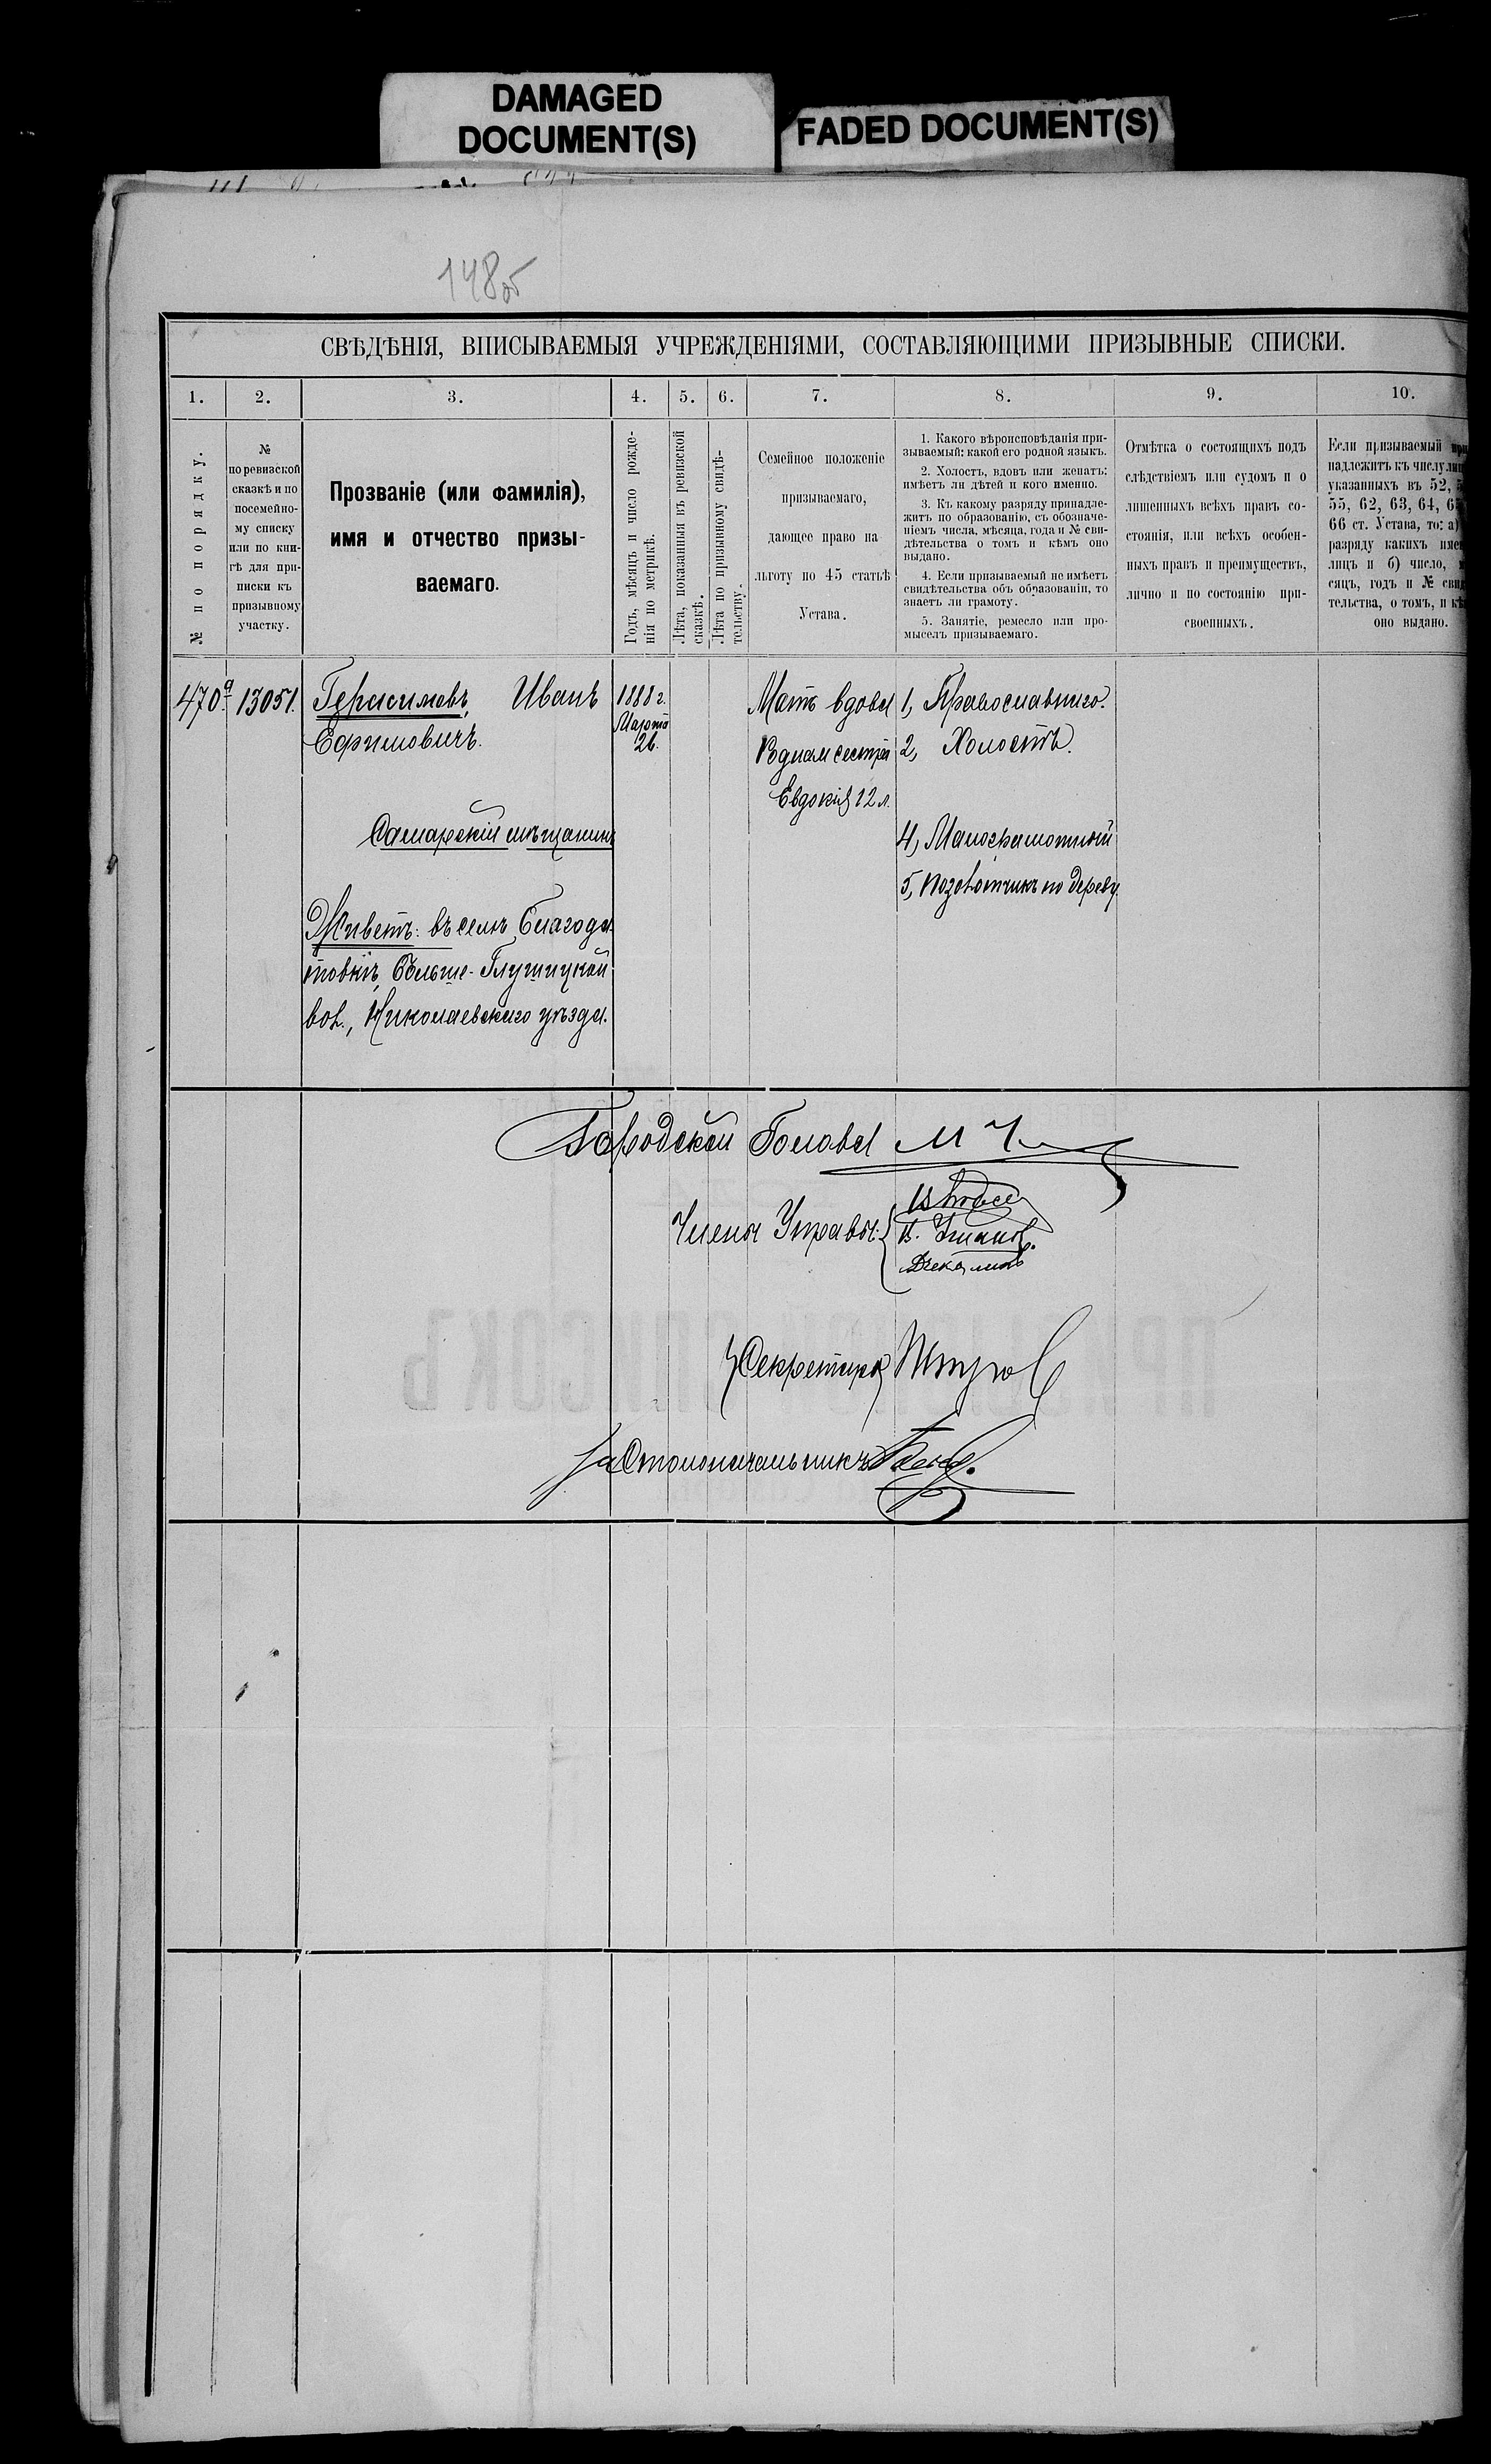 DAMAGED
DOCUMENT(S)
FADED DOCUMENT(S)
148об
СВѢДѢНІЯ, ВПИСЫВАЕМЫЯ УЧРЕЖДЕНІЯМИ, СОСТАВЛЯЮЩИМИ ПРИЗЫВНЫЕ СПИСКИ.
1.
2.
3.
4.
5.
6.
7.
8.
9.
10.
№ по порядку.
№
по ревизской
сказкѣ и по
посемейно-
му списку
или по кни-
гѣ для при-
писки къ
призывному
участку.
Прозваніе (или фамилія),
имя и отчество призы-
ваемаго.
Годъ, мѣсяцъ и число рожде-
нія по метрикѣ.
Лѣта, показанныя въ ревизской
сказкѣ.
Лѣта по призывному свидѣ-
тельству.
Семейное положеніе
призываемаго,
дающее право на
льготу по 45 статьѣ
Устава.
1. Какого вѣроисповѣданія при-
зываемый: какой его родной языкъ.
2. Холостъ, вдовъ или женатъ:
имѣетъ ли дѣтей и кого именно.
3. Къ какому разряду принадле-
житъ по образованію, съ обозначе-
ніемъ числа, мѣсяца, года и № сви-
дѣтельства о томъ и кѣмъ оно
выдано.
4. Если призываемый не имѣетъ
свидѣтельства объ образованіи, то
знаетъ ли грамоту.
5. Занятіе, ремесло или про-
мыселъ призываемаго.
Отмѣтка о состоящихъ подъ
слѣдствіемъ или судомъ и о
лишенныхъ всѣхъ правъ со-
стоянія, или всѣхъ особен-
ныхъ правъ и преимуществъ,
лично и по состоянію при-
своенныхъ.
Если призываемый при
надлежитъ къ числу лиц
указанныхъ въ 52,
55, 62, 63, 64, 65
66 ст. Устава, то: а)
разряду какихъ име
лицъ и б) число, м
сяцъ, годъ и № свид
тельства, о томъ, и кѣ
оно выдано.
470а
13051.
Герасимовъ, Иванъ
Ефимовичъ.
Самарскій мѣщанинъ
Живетъ: въ селѣ Благода-
товкѣ, Больше-Глушицкой
вол., Николаевскаго уѣзда.
1888 г.
Марта
26.
Мать вдова
Родная сестра
Евдокія 12 л.
1, Православнаго.
2, Холостъ.
4, Малограмотный
5, Позолотчикъ по дереву.
Городской Голова
Члены Управы:
Секретарь
За Столоначальникъ